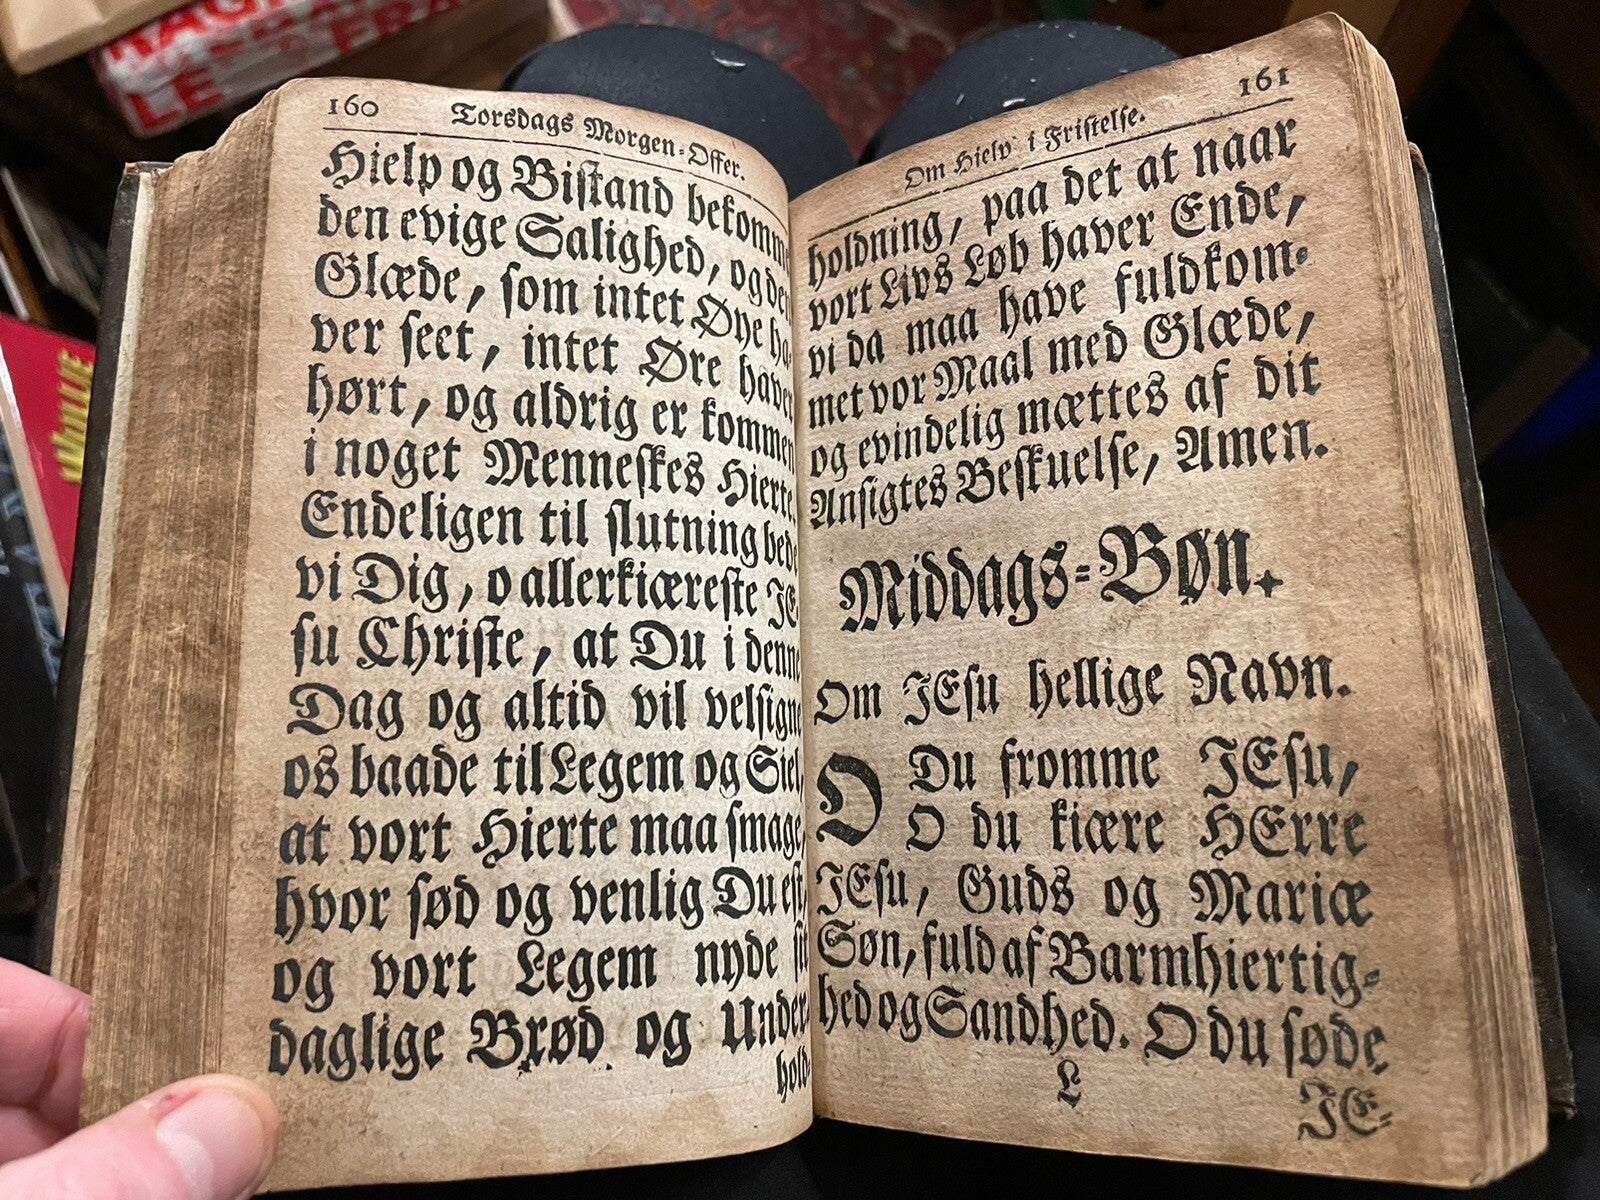 160
Torsdags Morgen-Offer.
Hielp og Bistand bekomme
den evige Salighed, og den
Glæde, som intet Øye ha-
ver seet, intet Øre haver
hørt, og aldrig er kommen
i noget Menneskes Hierte.
Endeligen til slutning bede
vi Dig, o allerkiæreste JE-
su Christe, at Du i denne
Dag og altid vil velsigne
os baade til Legem og Siel,
at vort Hierte maa smage,
hvor sød og venlig Du est,
og vort Legem nyde sit
daglige Brød og Under-
hold-
Om Hielp i Fristelse.
161
holdning, paa det at naar
vort Livs Løb haver Ende,
vi da maa have fuldkom-
met vor Maal med Glæde,
og evindelig mættes af dit
Ansigtes Beskuelse, Amen.
Middags-Bøn.
Om JEsu hellige Navn.
O Du fromme JEsu,
O du kiære HErre
JEsu, Guds og Mariæ
Søn, fuld af Barmhiertig-
hed og Sandhed. O du søde
L
JE-